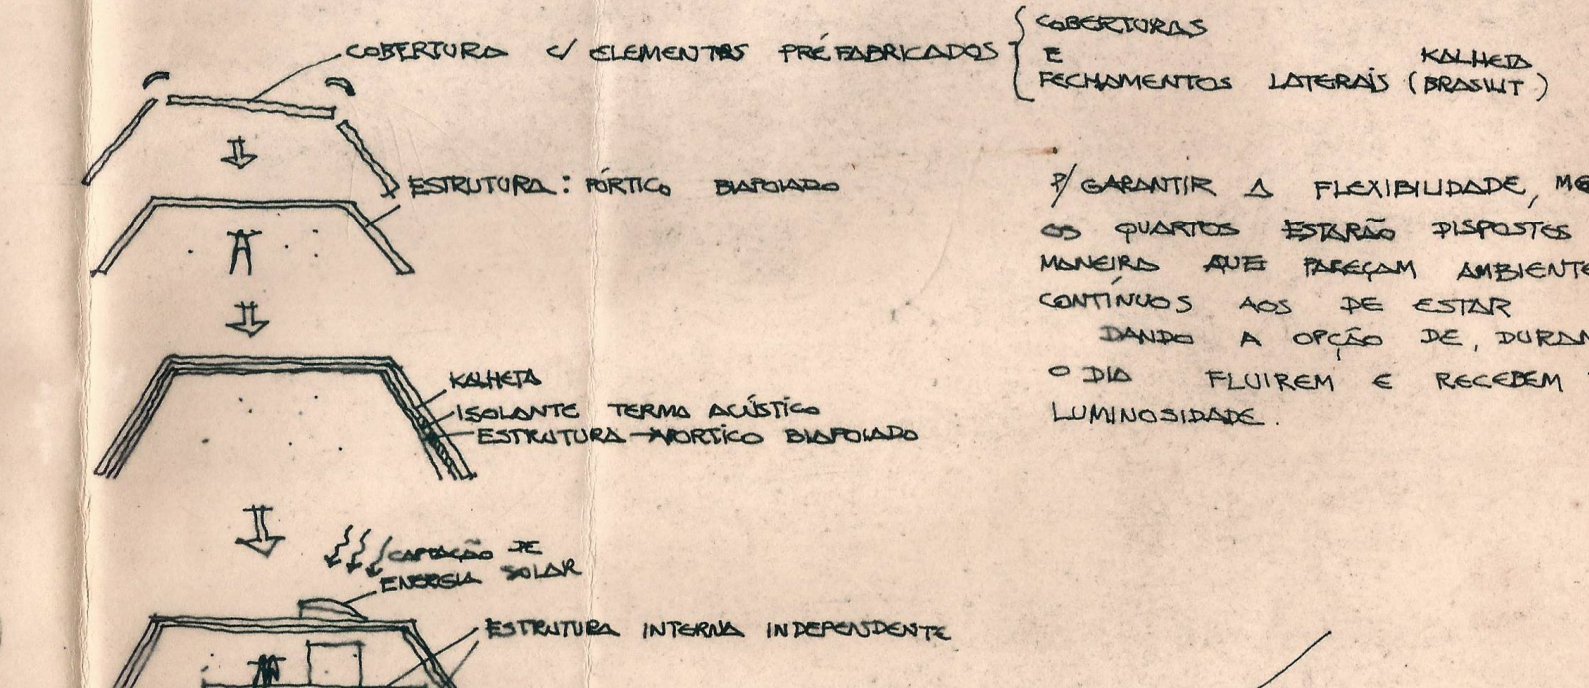 COBERTURA C/ ELEMENTOS PRÉFABRICADOS
COBERTURAS
E
FECHAMENTOS LATERAIS (BRASILIT)
KALHETA
ESTRUTURA: PÓRTICO BIAPOIADO
KALHETA
ISOLANTE TERMO ACÚSTICO
ESTRUTURA → PÓRTICO BIAPOIADO
CAPTAÇÃO DE
ENERGIA SOLAR
ESTRUTURA INTERNA INDEPENDENTE
P/ GARANTIR A FLEXIBILIDADE,
OS QUARTOS ESTARÃO DISPOSTOS
MANEIRA QUE PAREÇAM AMBIENTE
CONTÍNUOS AOS DE ESTAR
DANDO A OPÇÃO DE, DURAN
O DIA FLUIREM E RECEBEM
LUMINOSIDADE.